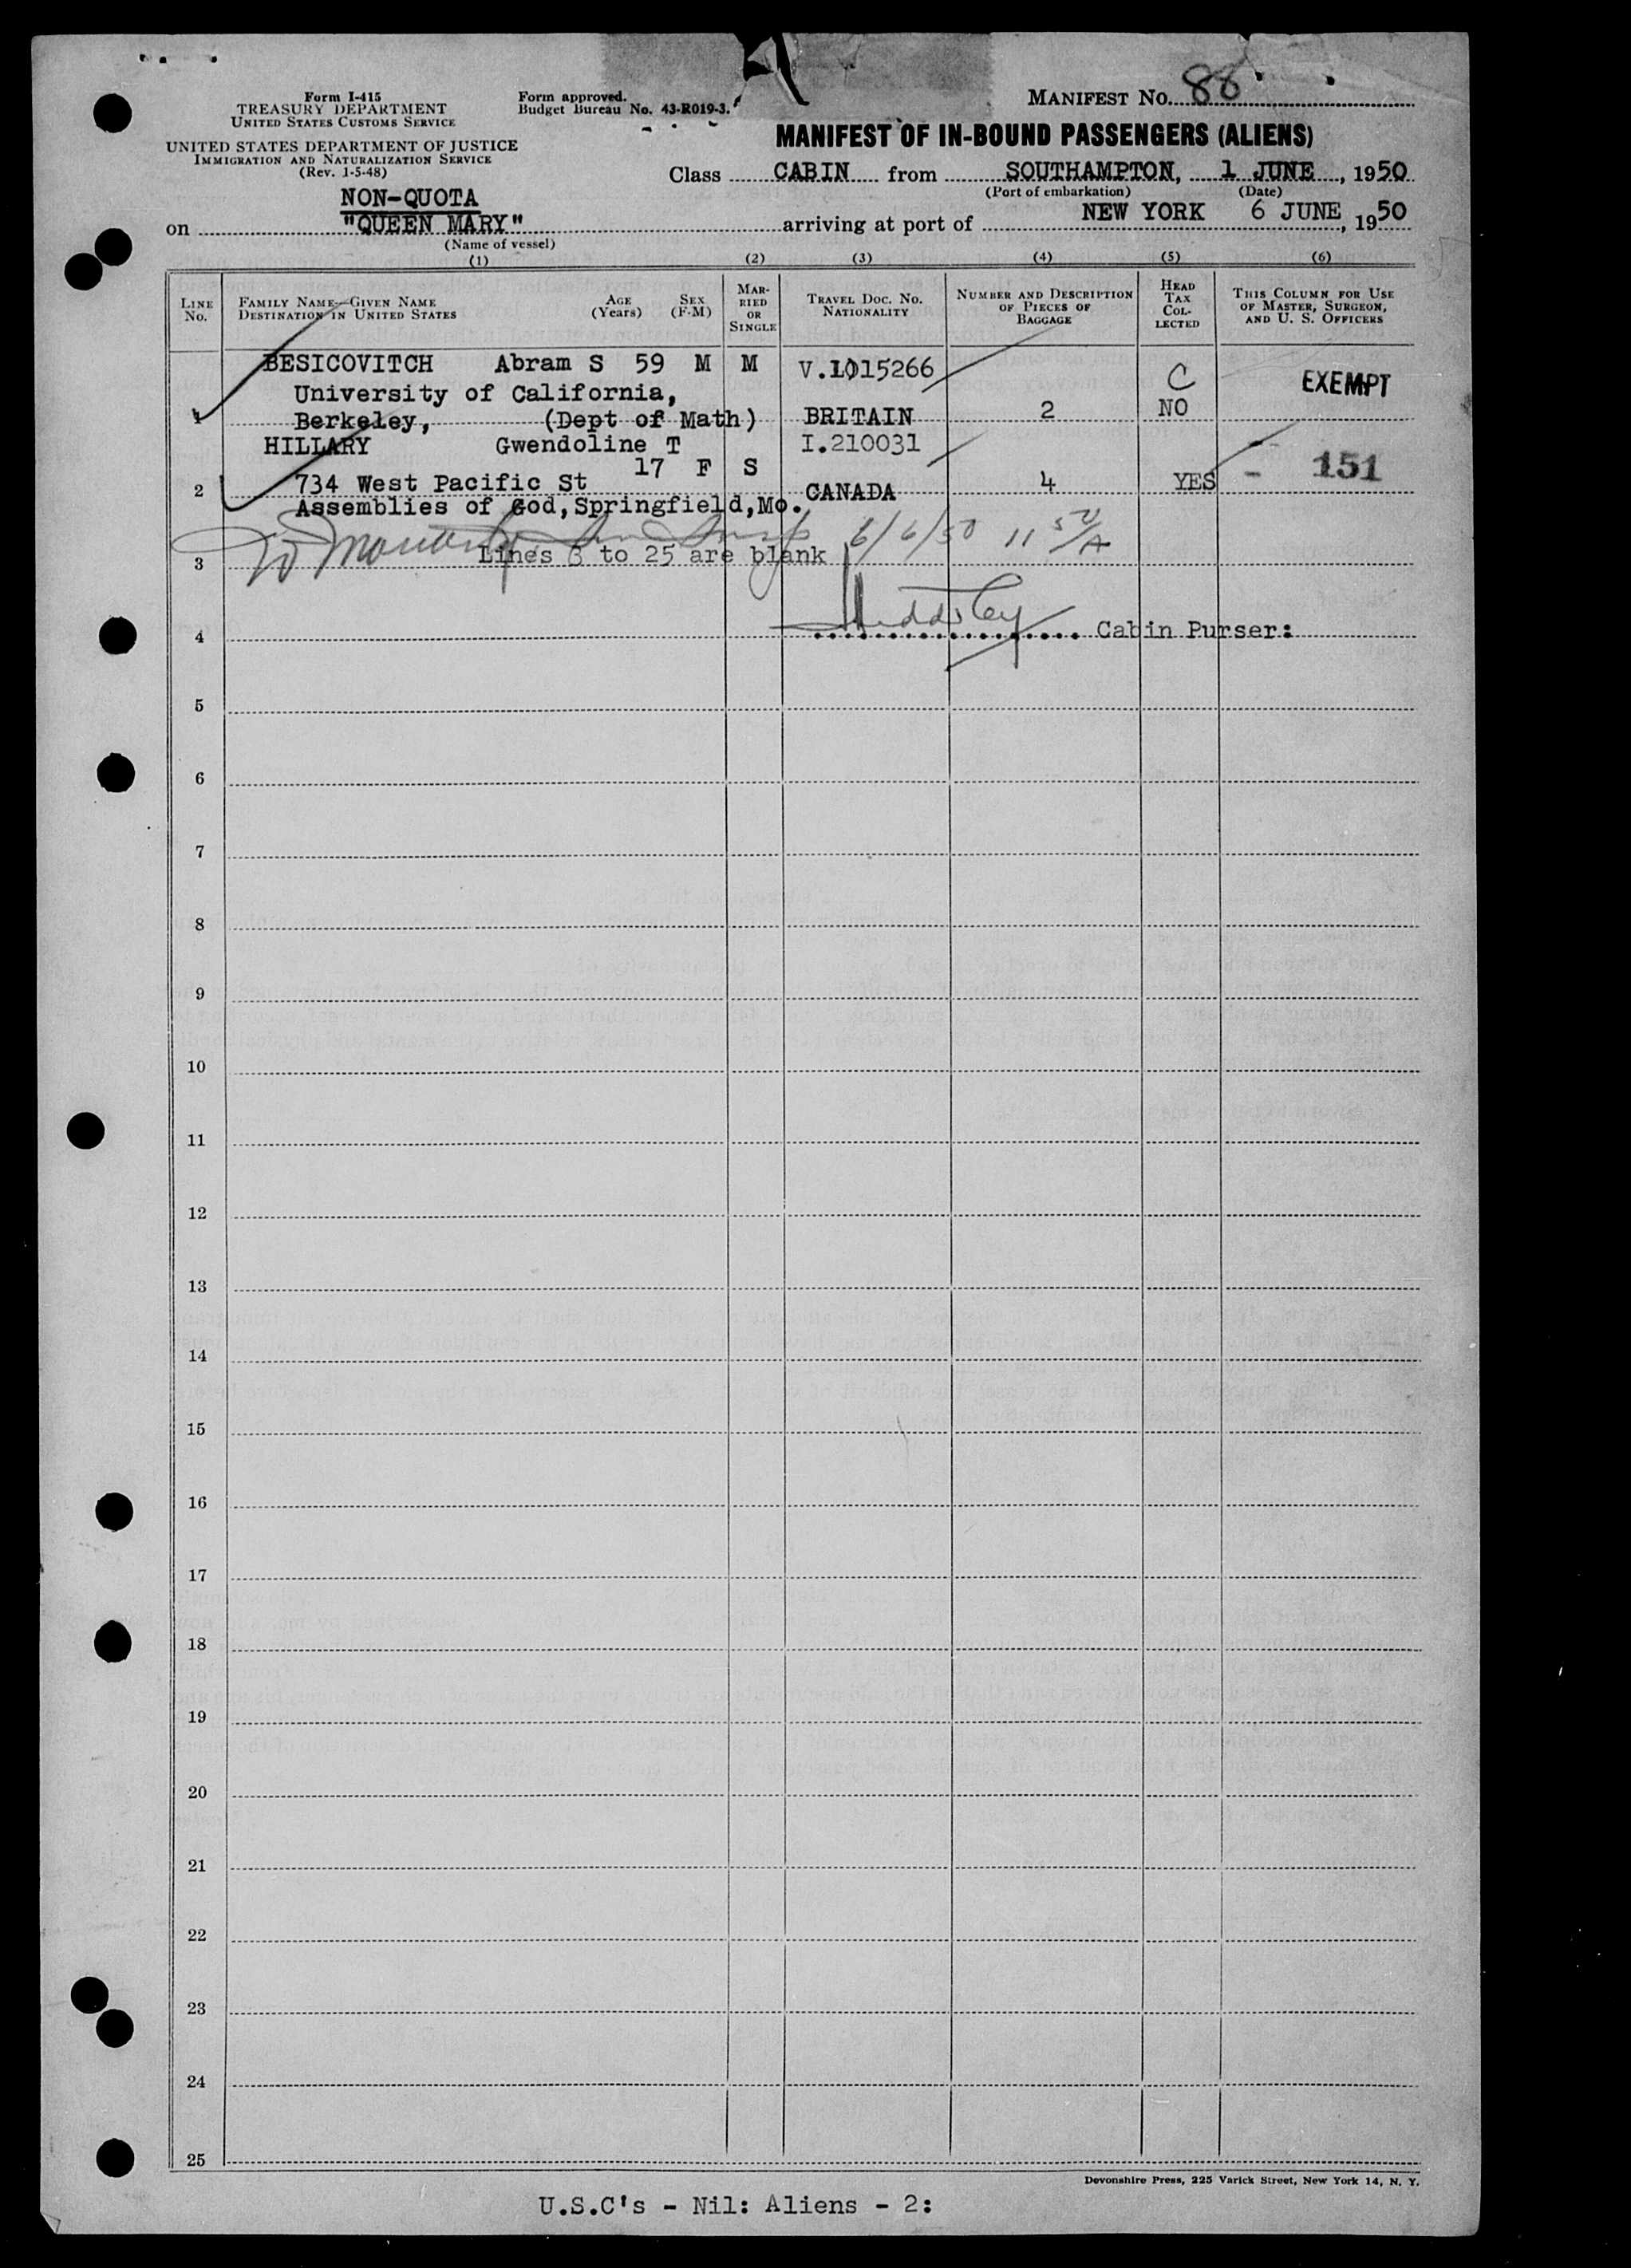 Form I-415
TREASURY DEPARTMENT
UNITED STATES CUSTOMS SERVICE
UNITED STATES DEPARTMENT OF JUSTICE
IMMIGRATION AND NATURALIZATION SERVICE
(Rev. 1-5-48)
Form approved.
Budget Bureau No. 43-R019-3.
MANIFEST NO. 88
MANIFEST OF IN-BOUND PASSENGERS (ALIENS)
Class CABIN from SOUTHAMPTON, 1 JUNE, 1950
(Port of embarkation) (Date)
NON-QUOTA
on "QUEEN MARY" arriving at port of NEW YORK 6 JUNE, 1950
(Name of vessel)
(1) (2) (3) (4) (5) (6)
LINE No. FAMILY NAME—GIVEN NAME DESTINATION IN UNITED STATES AGE (Years) SEX (F-M) MARRIED OR SINGLE TRAVEL DOC. NO. NATIONALITY NUMBER AND DESCRIPTION OF PIECES OF BAGGAGE HEAD TAX COLLECTED THIS COLUMN FOR USE OF MASTER, SURGEON, AND U. S. OFFICERS
BESICOVITCH Abram S 59 M M V.1015266 C EXEMPT
University of California,
1 Berkeley, (Dept of Math) BRITAIN 2 NO
HILLARY Gwendoline T I.210031
17 F S
2 734 West Pacific St CANADA 4 YES - 151
Assemblies of God, Springfield, Mo.
6/6/50 11 50/A
3 Lines 3 to 25 are blank
4 Cabin Purser:
5
6
7
8
9
10
11
12
13
14
15
16
17
18
19
20
21
22
23
24
25
Devonshire Press, 225 Varick Street, New York 14, N. Y.
U.S.C's - Nil: Aliens - 2: